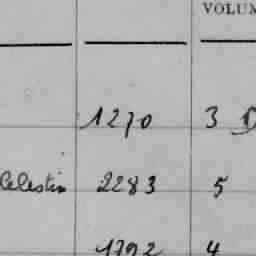 VOLUM
1270 3 D
Celestin 2283 5
1792 4